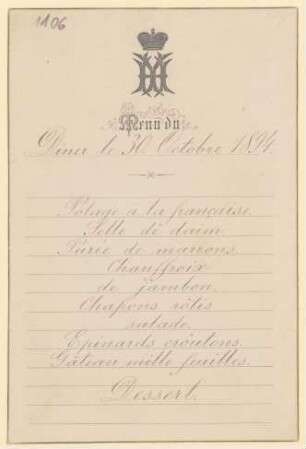 1106
Menu du
Dîner le 30 Octobre 1894
Potage à la française.
Selle de daim.
Purée de marrons.
Chauffroix
de jambon.
Chapons rôtis
salade.
Epinards croûtons.
Gâteau mille feuilles.
Dessert.